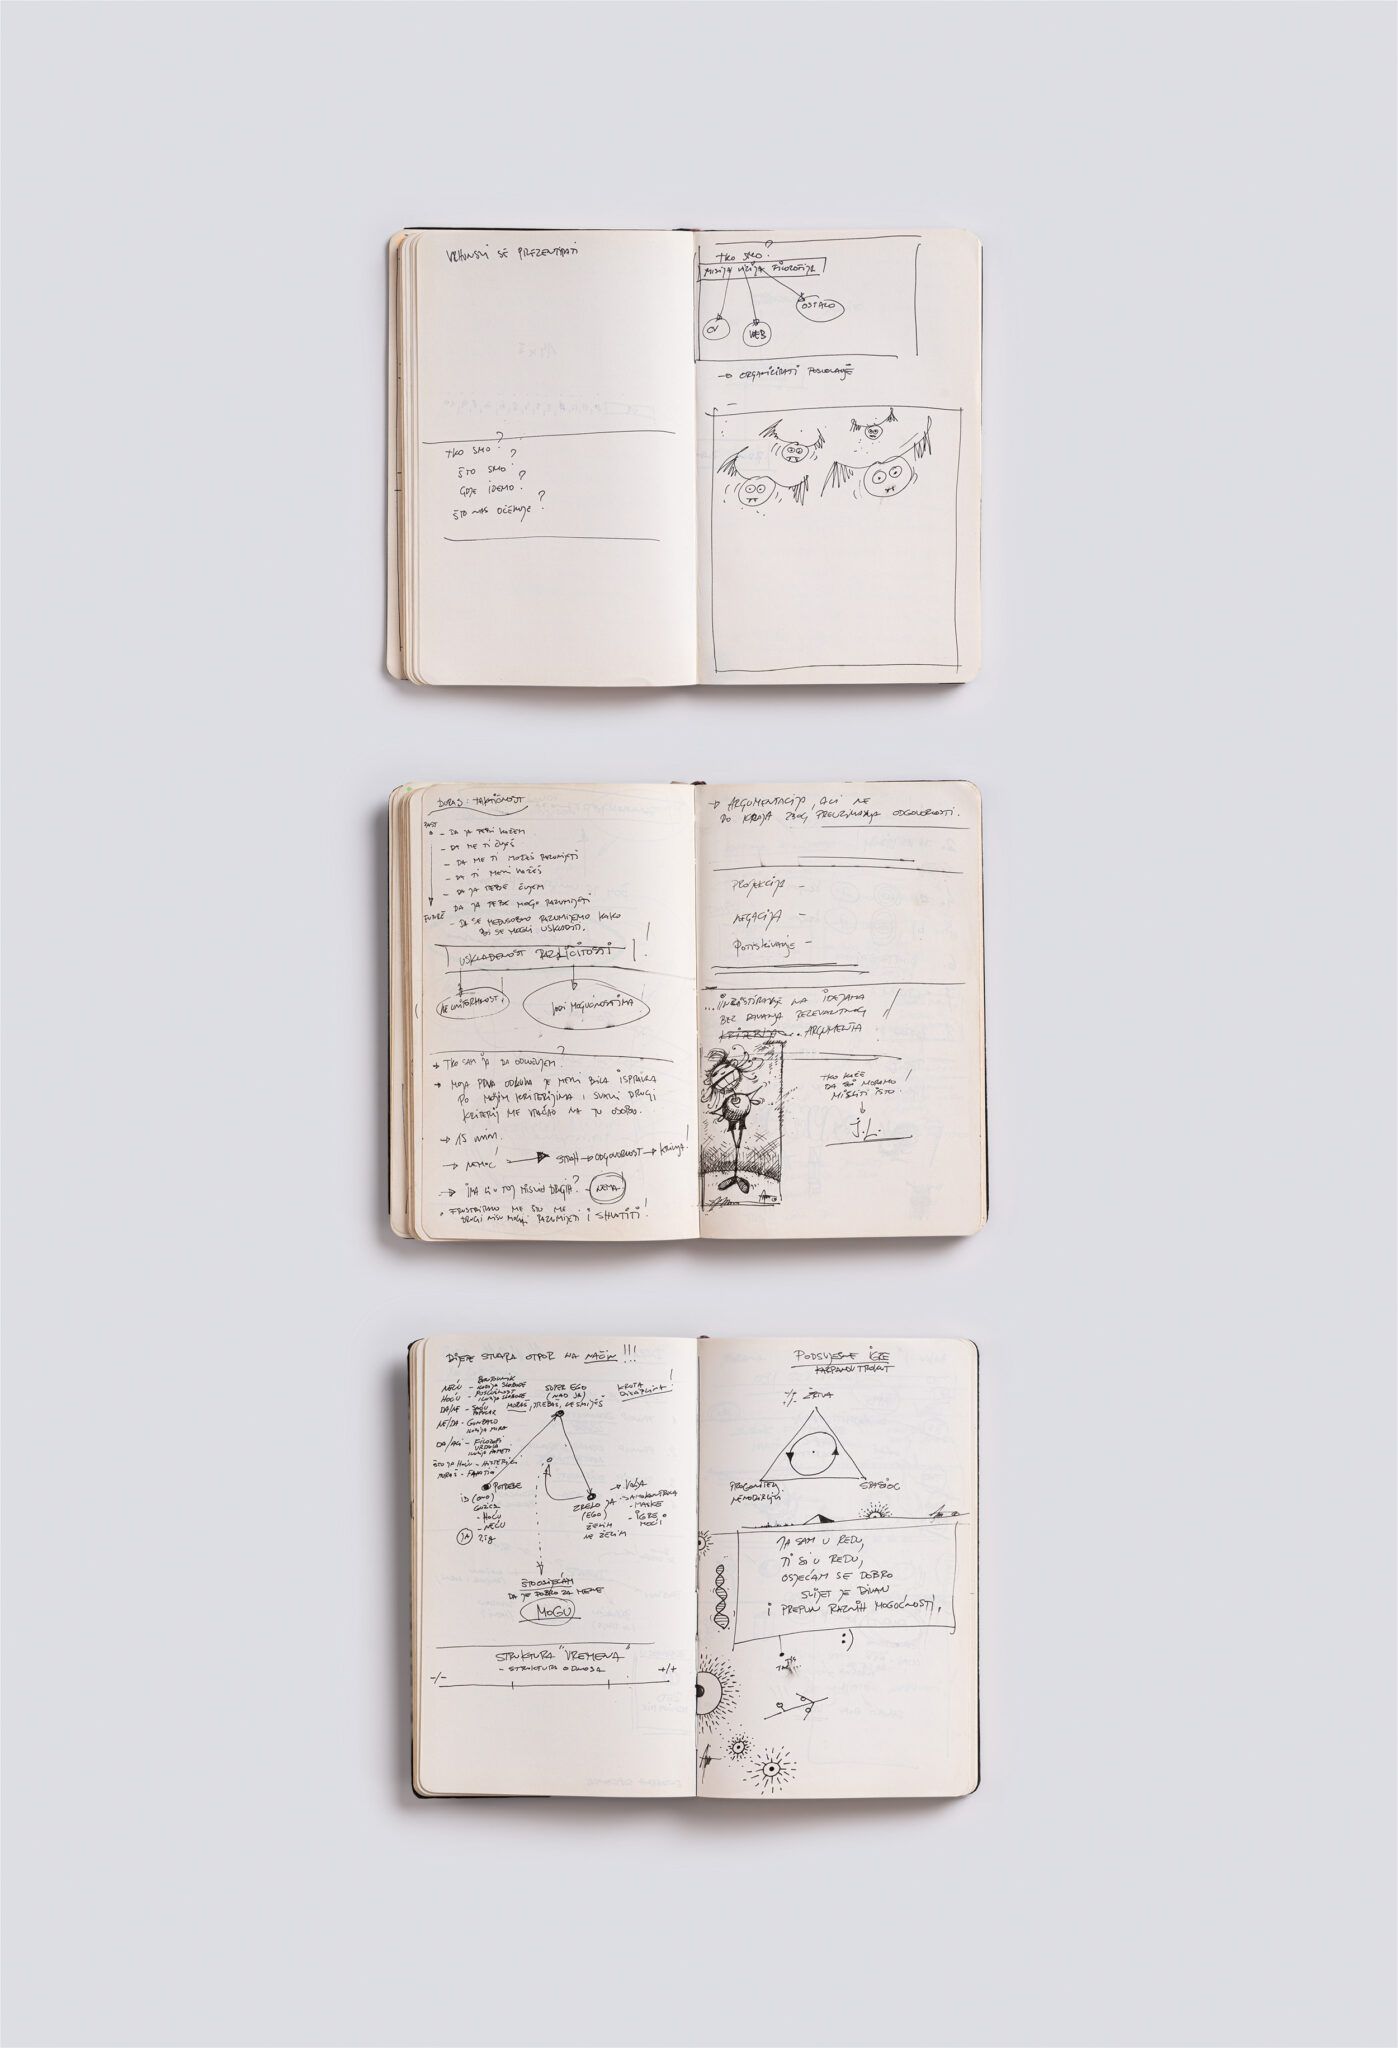 VRHUNSKI SE PREZENTIRATI
TKO SMO?
ŠTO SMO?
GDJE IDEMO?
ŠTO NAS OČEKUJE?
TKO SMO?
MISIJA VIZIJA FILOZOFIJA
CV
WEB
OSTALO
→ ORGANIZIRATI POSLOVANJE
TAKTIČNOST
PAST
- DA JA TEBI KAŽEM
- DA ME TI ČUJEŠ
- DA ME TI MOŽEŠ RAZUMIJETI
- DA TI MENI KAŽEŠ
- DA JA TEBE ČUJEM
FUTURE
- DA JA TEBE MOGU RAZUMIJETI
- DA SE MEĐUSOBNO RAZUMIJEMO KAKO
BI SE MOGLI USKLADITI.
USKLAĐENOST RAZLIČITOSTI!
NE UNIFORMNOST!
MOGUĆNOSTIMA
→ TKO SAM JA DA ODLUČUJEM?
→ MOJA PRVA ODLUKA JE MENI BILA ISPRAVNA
PO MOJIM KRITERIJIMA I SVAKI DRUGI
KRITERIJ ME VRAĆAO NA TU OSOBU.
→ 15 MIN.
→ NEMOĆ! → STRAH → ODGOVORNOST → KRIVNJA!
→ IMA LI U TOJ MISIJI DRUGIH? - NEMA
• FRUSTRIRALO ME ŠTO ME
DRUGI NISU MOGLI RAZUMIJETI I SHVATITI!
→ ARGUMENTACIJA, ALI NE
DO KRAJA ZBOG PREUZIMANJA ODGOVORNOSTI.
PROJEKCIJA -
NEGACIJA -
POTISKIVANJE -
...INZISTIRANJE NA IDEJAMA
BEZ DAVANJA RELEVANTNOG
KRITERIJA. ARGUMENTA
TKO KAŽE
DA SVI MORAMO
MISLITI ISTO!
J.L.
DIJETE STVARA OTPOR NA NAČIN!!!
NEĆU - BUNTOVNIK
ILUZIJA SLOBODE
HOĆU - POSLUŠNOST
ILUZIJA SLOBODE
DA/NE -
NE/DA -
ILUZIJA MIRA
DA/ALI - FILOZOF
ILUZIJA PAMETI
ŠTO JA HOĆU - HISTERIK
MORAŠ - FANATIK
SUPER EGO
(NAD JA)
MORAŠ, TREBAŠ, NE SMIJEŠ
DISCIPLINA!
POTREBE
ID (ONO)
- HOĆU
- NEĆU
JA
ZRELO JA
(EGO)
ŽELIM
NE ŽELIM
→ VOLJA
- SAMOKONTROLA
- MASKE
- IGRE MOĆI
ŠTO OSJEĆAM
DA JE DOBRO ZA MENE
MOGU
STRUKTURA "VREMENA"
- STRUKTURA ODNOSA
-/-
+/+
PODSVJESNE IGRE
KARPMANOV TROKUT
-/-
ŽRTVA
PROGONITELJ
SPASIOC
JA SAM U REDU,
TI SI U REDU,
OSJEĆAM SE DOBRO
SVIJET JE DIVAN
I PREPUN RAZNIH MOGUĆNOSTI.